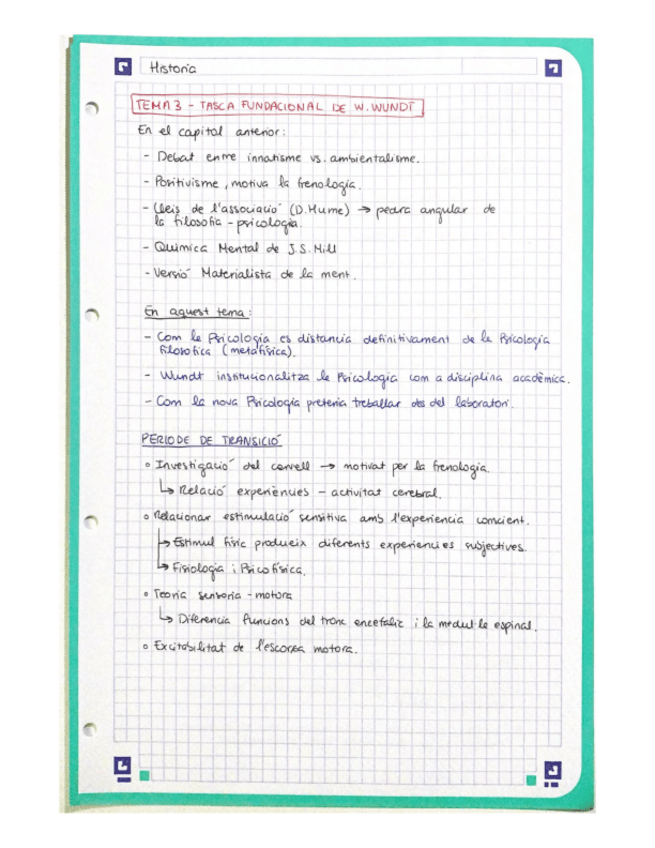 Historia
TEMA 3 - TASCA FUNDACIONAL DE W. WUNDT
En el capitol anterior:
- Debat entre innatisme vs. ambientalisme.
- Positivisme, motiva la frenologia.
- Lleis de l'associació (D. Hume) → pedra angular de
la filosofia - psicologia.
- Química Mental de J.S. Mill
- Versió Materialista de la ment.
En aquest tema:
- Com la Psicologia es distancia definitivament de la Psicologia
filosofica (metafísica).
- Wundt institucionalitza la Psicologia com a disciplina acadèmica.
- Com la nova Psicologia pretenia treballar des del laboratori.
PERIODE DE TRANSICIÓ
• Investigació del cervell → motivat per la frenologia.
↳ Relació experiències - activitat cerebral.
• Relacionar estimulació sensitiva amb l'experiencia conscient.
↳ Estimul físic produeix diferents experiencies subjectives.
↳ Fisiologia i Psicofísica.
• Teoria sensoria - motora
↳ Diferencia funcions del tronc encefalic i la medul·le espinal.
• Excitabilitat de l'escorça motora.